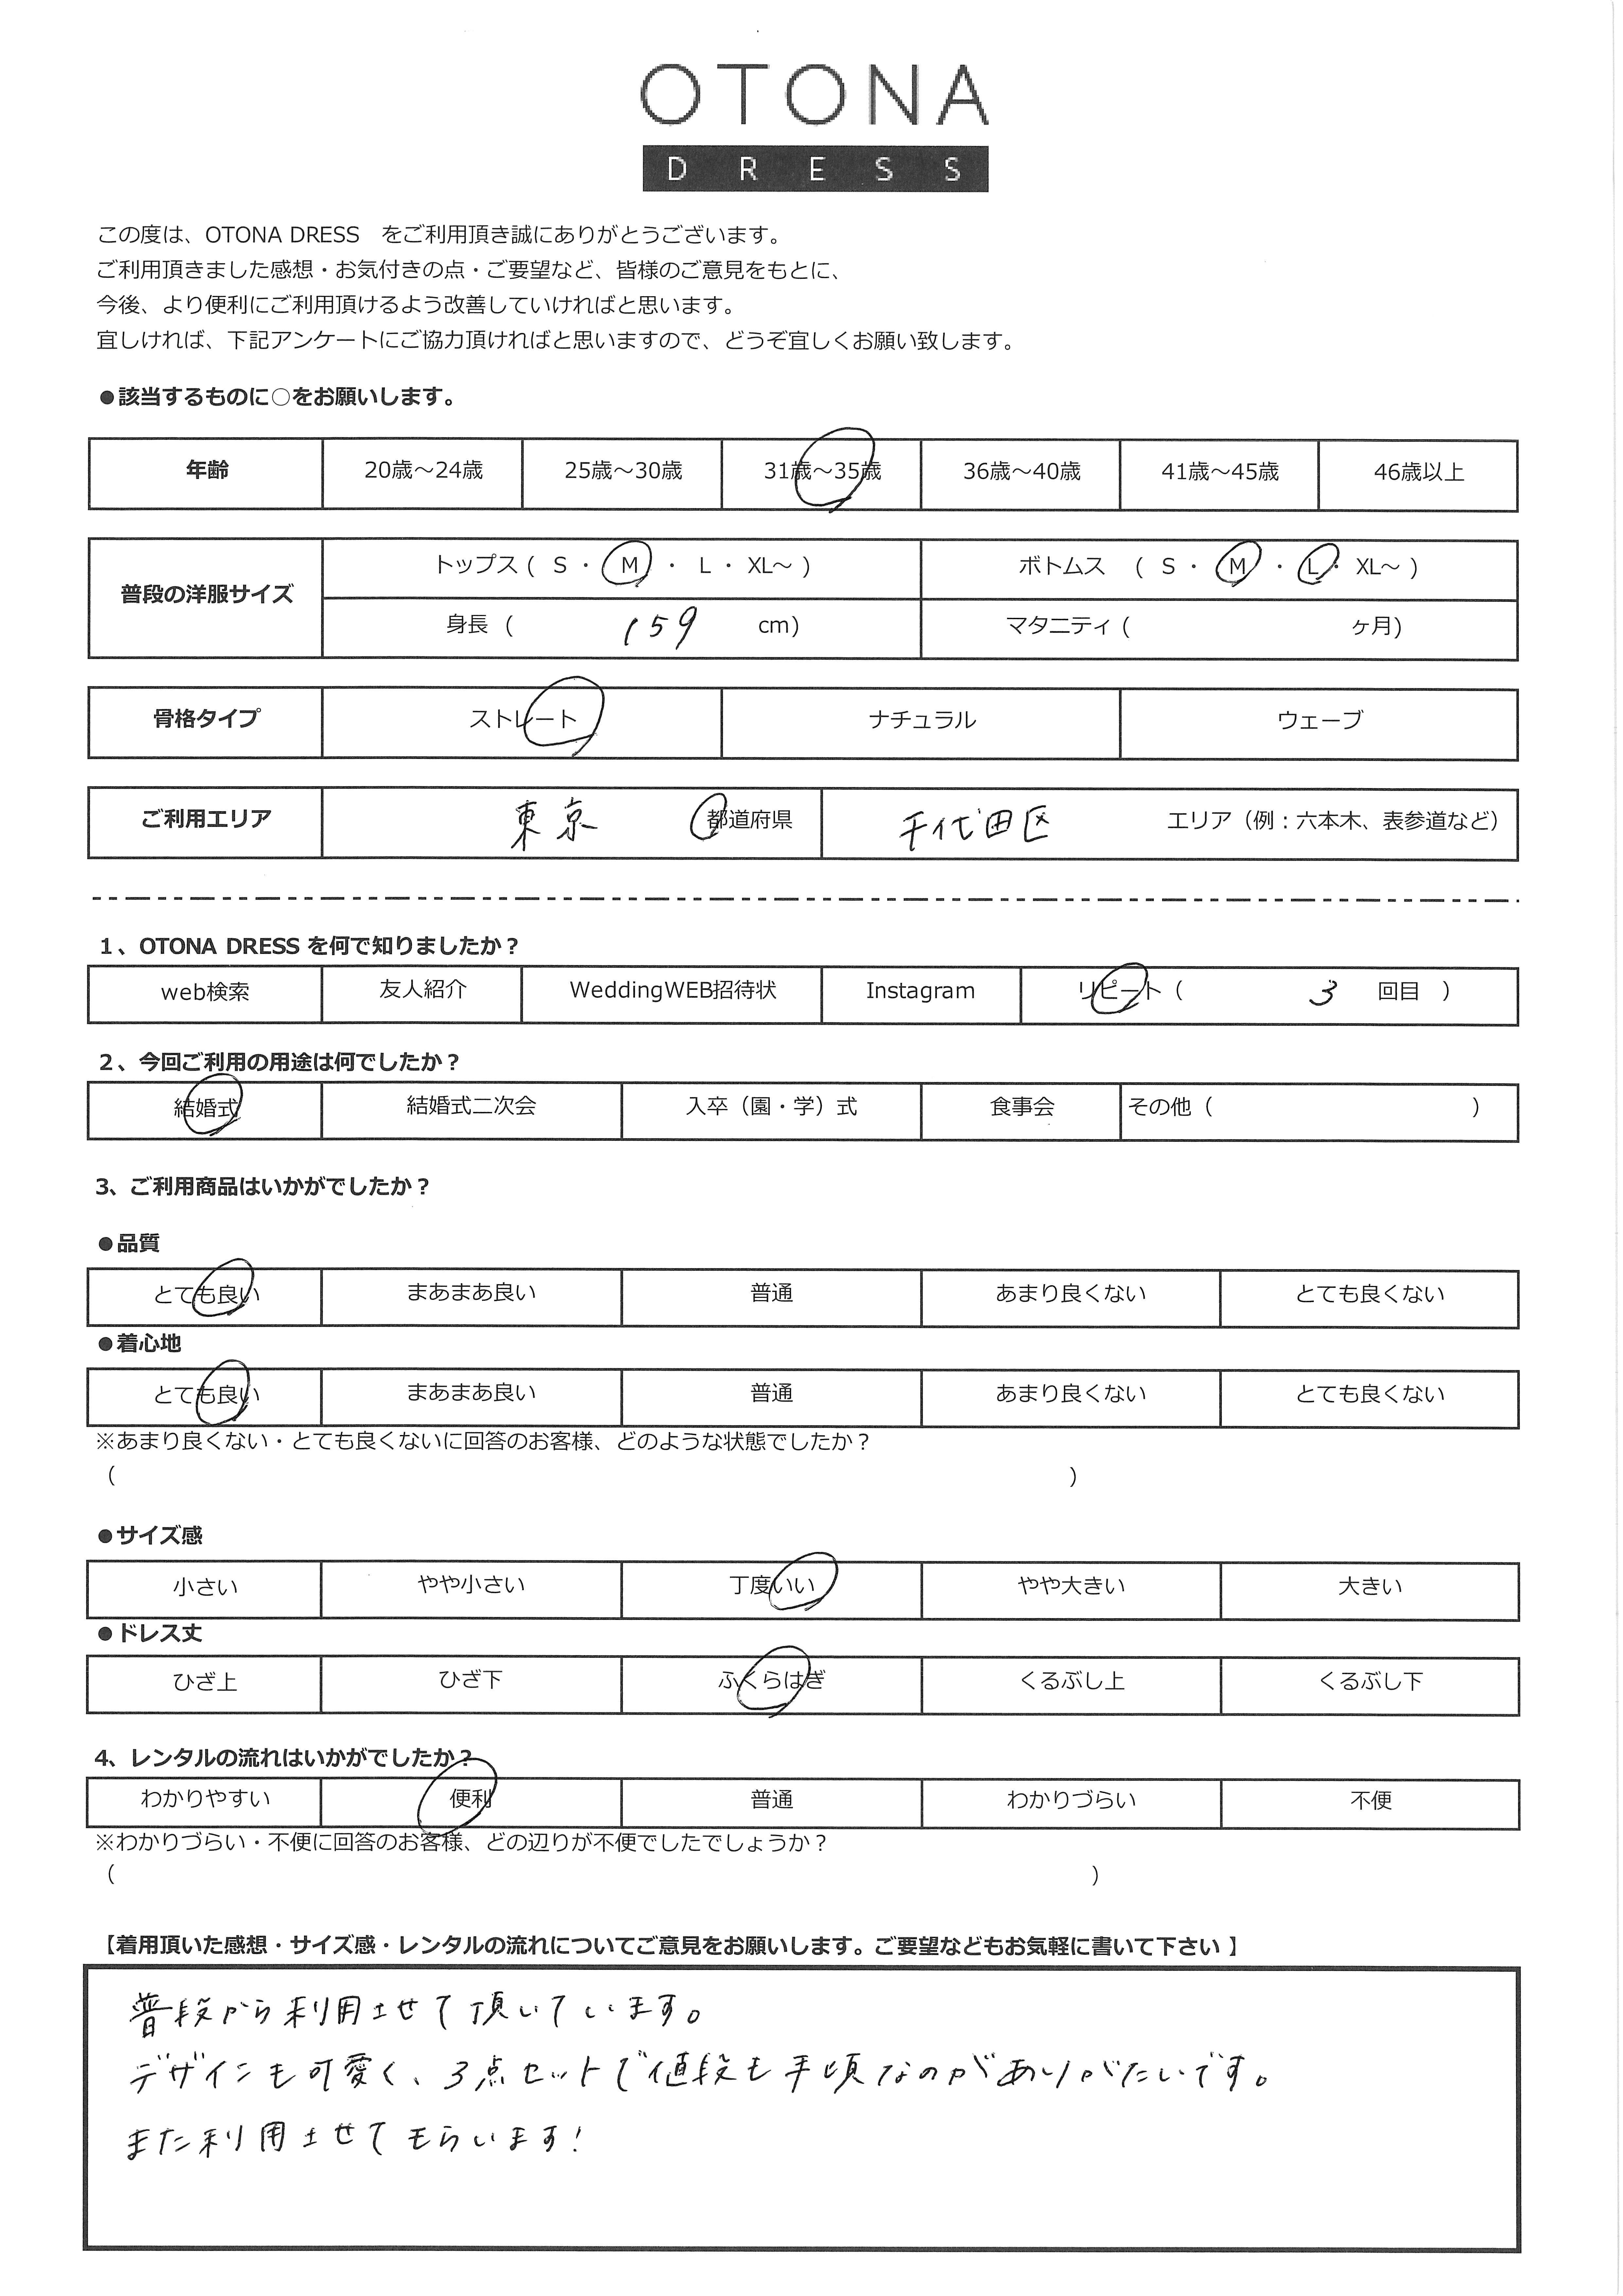 OTONA
DRESS
この度は、OTONA DRESS　をご利用頂き誠にありがとうございます。
ご利用頂きました感想・お気付きの点・ご要望など、皆様のご意見をもとに、
今後、より便利にご利用頂けるよう改善していければと思います。
宜しければ、下記アンケートにご協力頂ければと思いますので、どうぞ宜しくお願い致します。
●該当するものに○をお願いします。
年齢 20歳～24歳 25歳～30歳 31歳～35歳 36歳～40歳 41歳～45歳 46歳以上
普段の洋服サイズ トップス ( S ・ M ・ L ・ XL～ ) ボトムス ( S ・ M ・ L ・ XL～ )
身長 ( 159 cm) マタニティ ( ヶ月)
骨格タイプ ストレート ナチュラル ウェーブ
ご利用エリア 東京 都道府県 千代田区 エリア（例：六本木、表参道など）
1、OTONA DRESS を何で知りましたか？
web検索 友人紹介 WeddingWEB招待状 Instagram リピート（ 3 回目 ）
2、今回ご利用の用途は何でしたか？
結婚式 結婚式二次会 入卒（園・学）式 食事会 その他（ ）
3、ご利用商品はいかがでしたか？
●品質
とても良い まあまあ良い 普通 あまり良くない とても良くない
●着心地
とても良い まあまあ良い 普通 あまり良くない とても良くない
※あまり良くない・とても良くないに回答のお客様、どのような状態でしたか？
（ ）
●サイズ感
小さい やや小さい 丁度いい やや大きい 大きい
●ドレス丈
ひざ上 ひざ下 ふくらはぎ くるぶし上 くるぶし下
4、レンタルの流れはいかがでしたか？
わかりやすい 便利 普通 わかりづらい 不便
※わかりづらい・不便に回答のお客様、どの辺りが不便でしたでしょうか？
（ ）
【着用頂いた感想・サイズ感・レンタルの流れについてご意見をお願いします。ご要望などもお気軽に書いて下さい 】
普段から利用させて頂いています。
デザインも可愛く、3点セットで値段も手頃なのがありがたいです。
また利用させてもらいます!